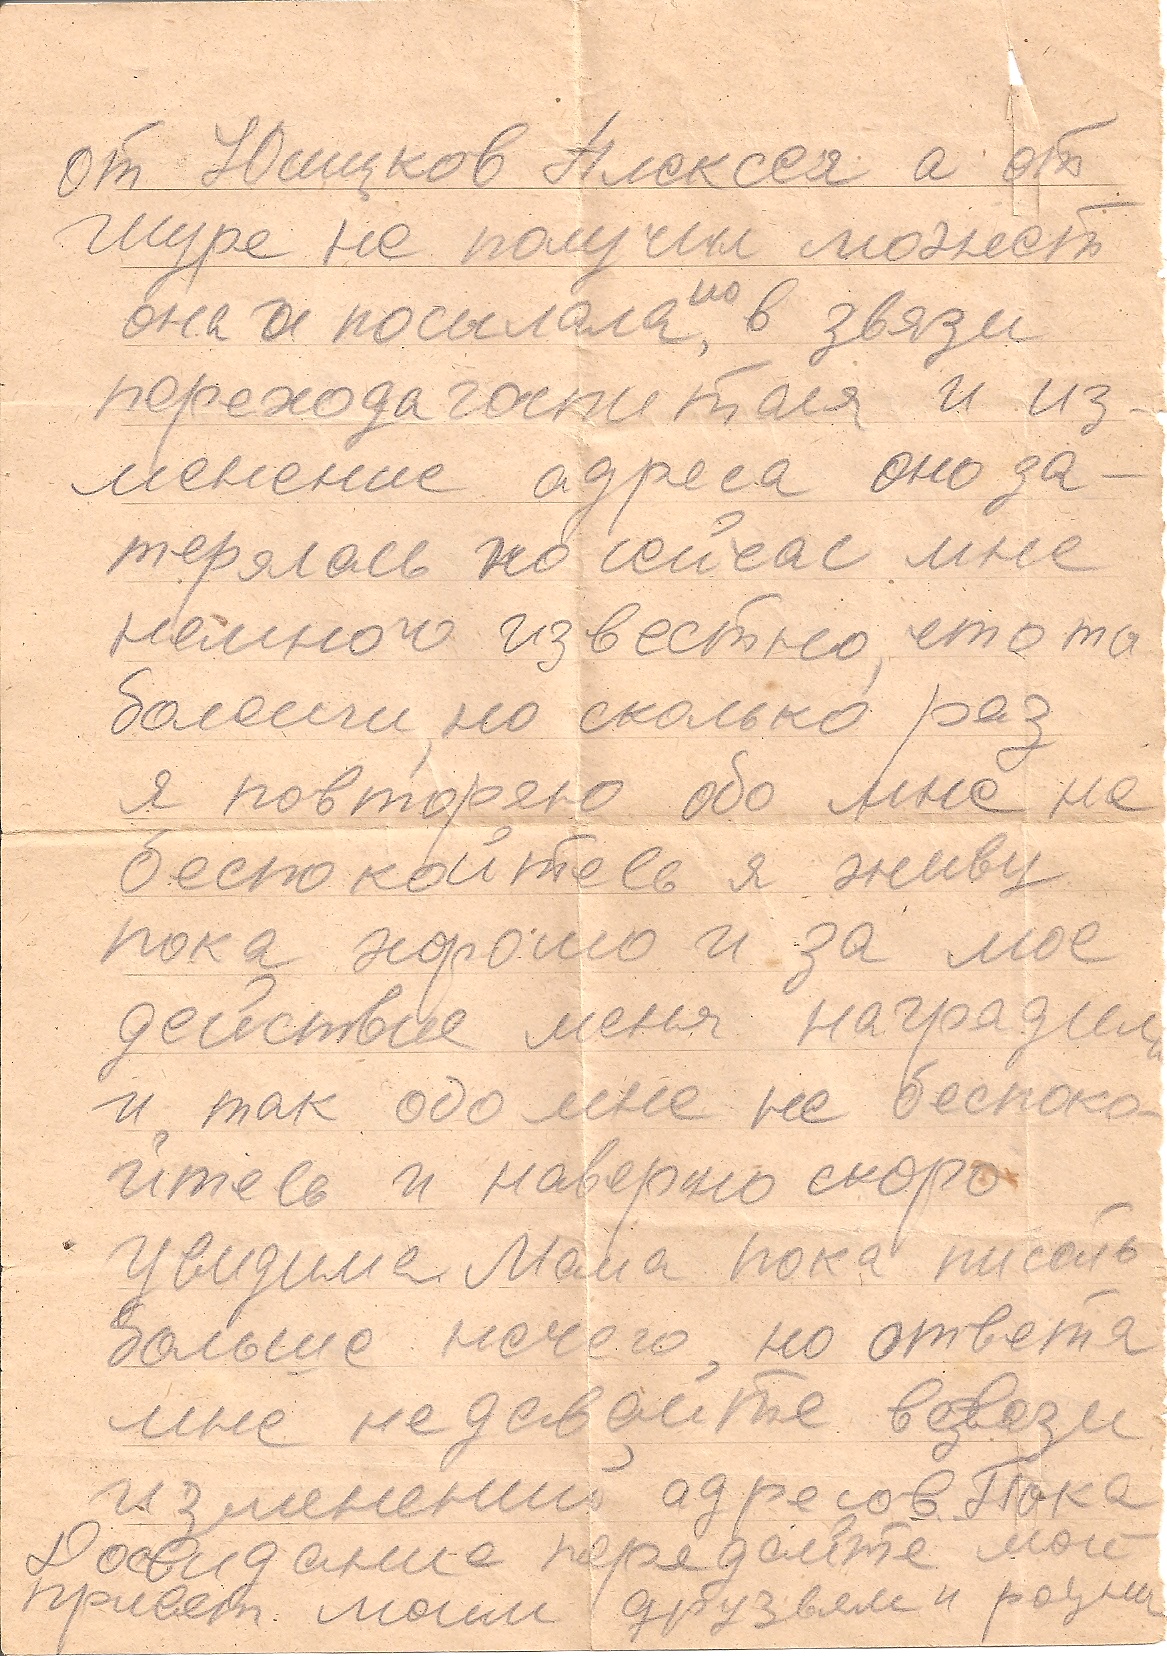 от Юшков Алексея а от
шуре не получилможест
она и посылала, но в звязи
перехода госпиталя и из-
менение адреса оно за-
терялась но сейчас мне
немного известно, что ты
болеичи, но сколько раз
я повторяю обо мне не
беспокойтесь я живу
пока хорошо и за мое
действие меня наградили
и так обо мне не беспоко-
йтесь и наверно скоро
увидима Мама пока писать
больше нечего, но ответа
мне недавайте взвези
изменений адресов. Пока
Досвидание передайте мой
привет моим друзьям и родни